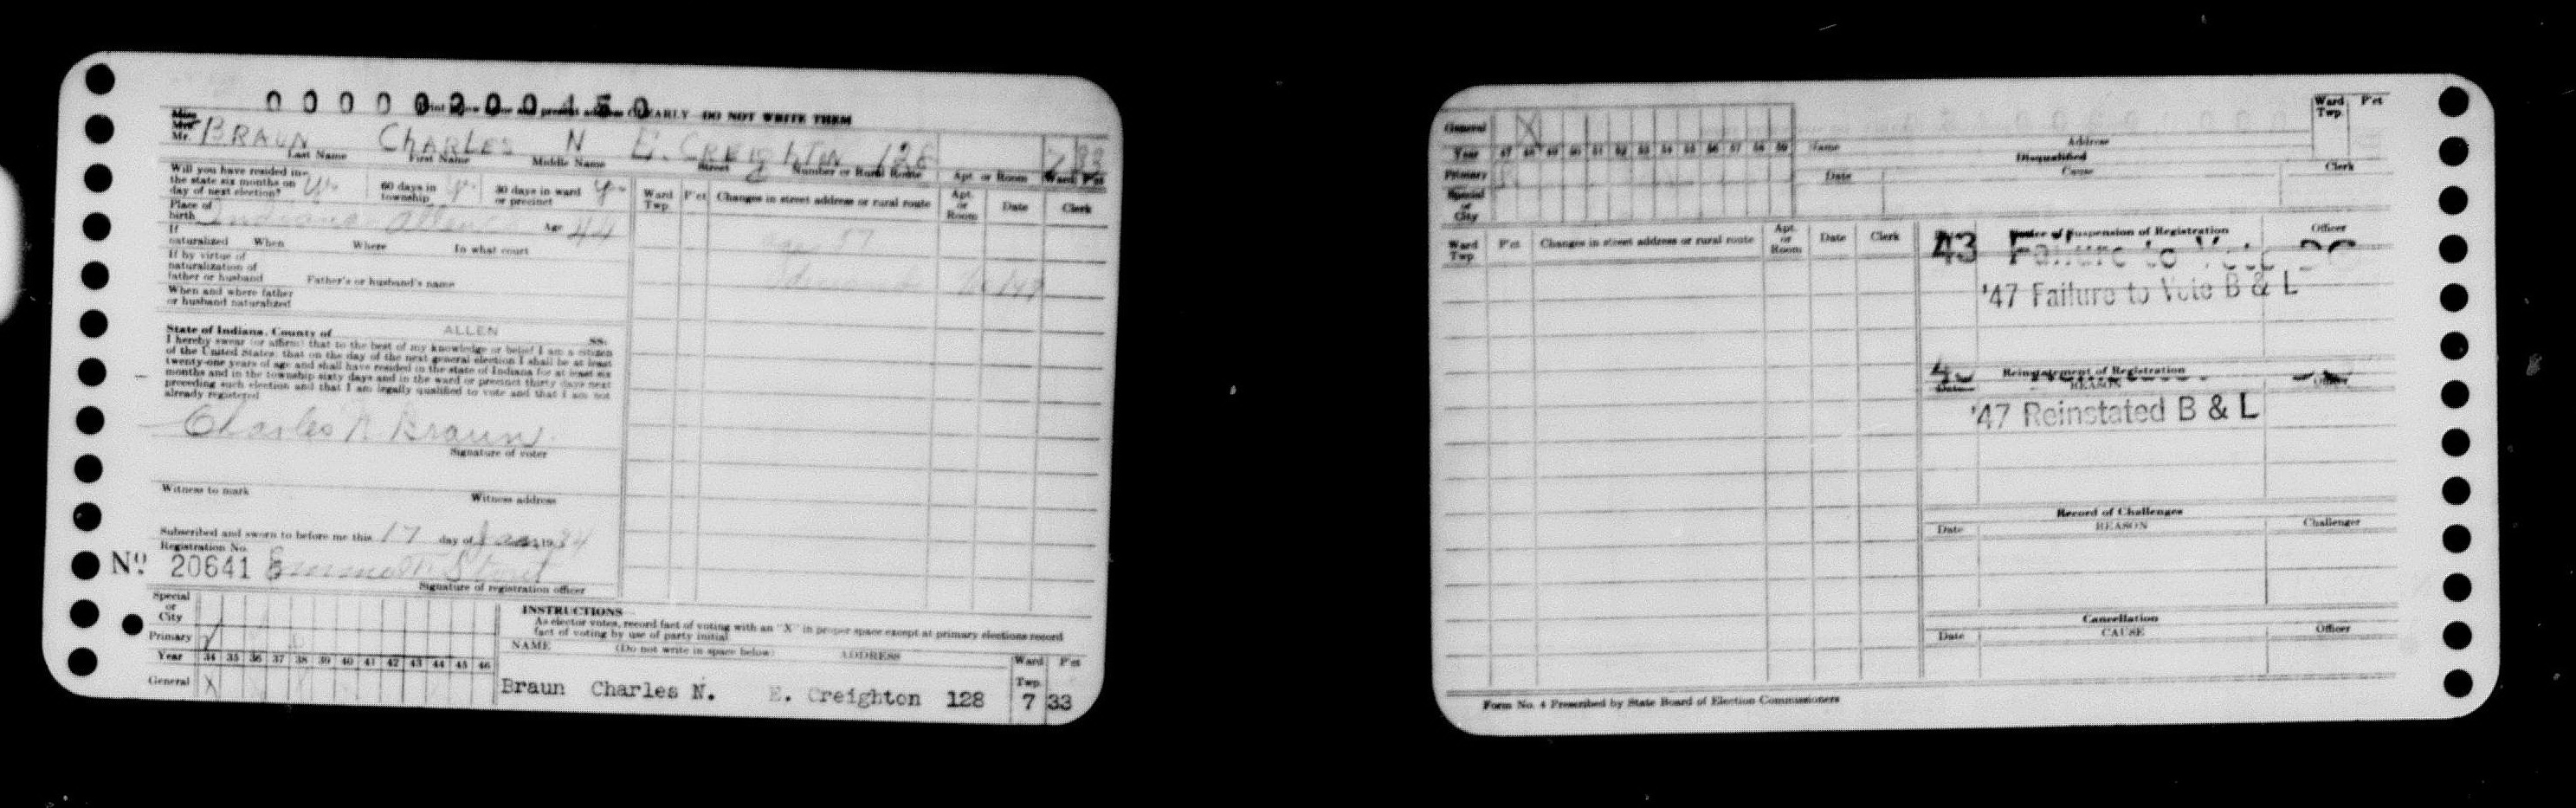 0 0 0 0 0 2 0 0 4 5 0
CLEARLY DO NOT WRITE THEM
Miss
Mrs.
Mr. BRAUN CHARLES N E. CREIGHTON 128 7 33
Last Name First Name Middle Name Street Number or Rural Route Apt. or Room Ward P'ct
Will you have resided in
the state six months on
day of next election? yes 60 days in township yes 30 days in ward or precinct yes
Place of birth Indiana Allen Age 44
If naturalized When Where In what court
If by virtue of
naturalization of
father or husband Father's or husband's name
When and where father
or husband naturalized
Ward Twp. P'ct Changes in street address or rural route Apt. or Room Date Clerk
State of Indiana, County of ALLEN SS:
I hereby swear (or affirm) that to the best of my knowledge or belief I am a citizen
of the United States; that on the day of the next general election I shall be at least
twenty-one years of age and shall have resided in the state of Indiana for at least six
months and in the township sixty days and in the ward or precinct thirty days next
preceding such election and that I am legally qualified to vote and that I am not
already registered
Charles N. Braun
Signature of voter
Witness to mark Witness address
Subscribed and sworn to before me this 17 day of Jan 1934
Registration No.
Nº 20641
Signature of registration officer
Special
or
City
Primary
Year 34 35 36 37 38 39 40 41 42 43 44 45 46
General X
INSTRUCTIONS
As elector votes, record fact of voting with an "X" in proper space except at primary elections record
fact of voting by use of party initial
NAME (Do not write in space below) ADDRESS Ward Twp. P'ct
Braun Charles N. E. Creighton 128 7 33
General X
Year 47 48 49 50 51 52 53 54 55 56 57 58 59
Primary R
Special
or
City
Name Address Ward Twp. P'ct
Disqualified
Date Cause Clerk
Ward Twp. P'ct Changes in street address or rural route Apt. or Room Date Clerk
Notice of Suspension of Registration Officer
43 Failure to Vote
'47 Failure to Vote B & L
Reinstatement of Registration
Date REASON Officer
'47 Reinstated B & L
Record of Challenges
Date REASON Challenger
Cancellation
Date CAUSE Officer
Form No. 4 Prescribed by State Board of Election Commissioners